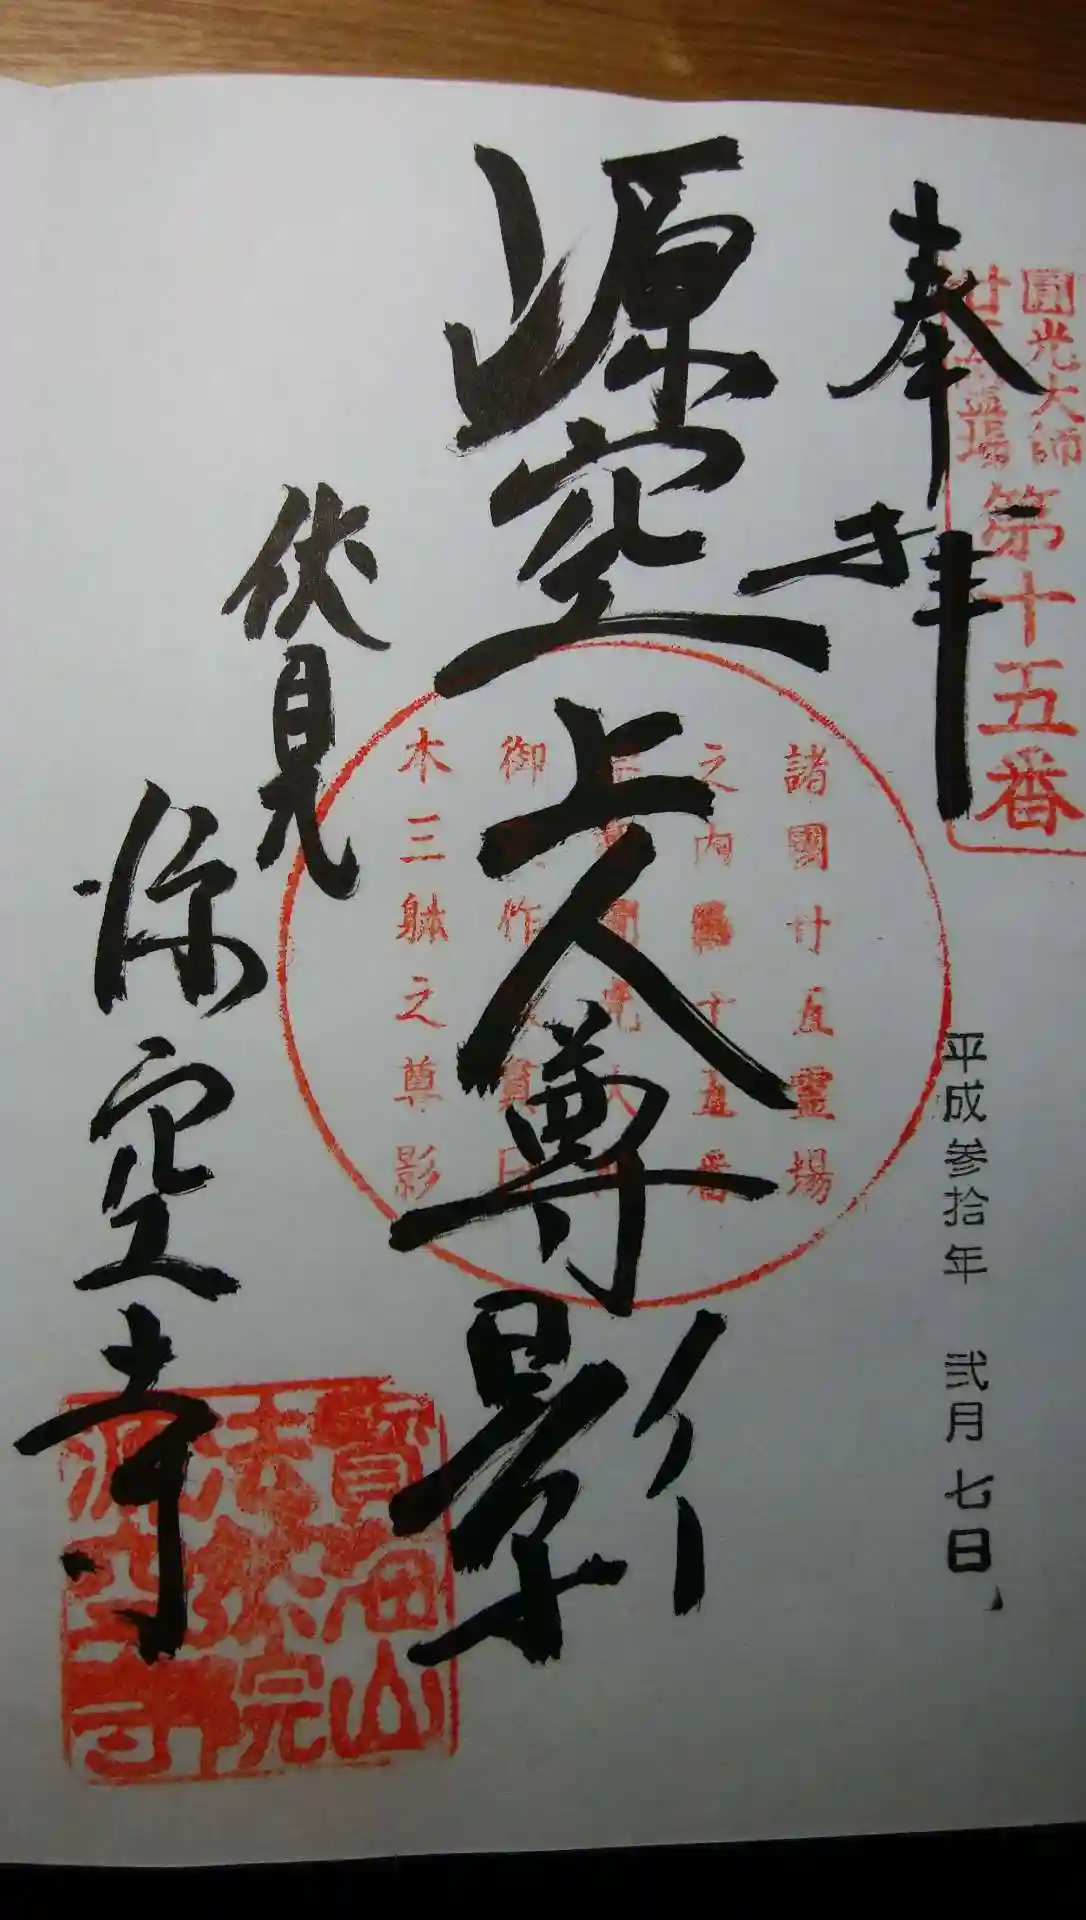 圓光大師
廿五霊場
第十五番
奉拝
平成参拾年 弐月七日
源空上人尊影
諸國廿五霊場
之内
十五番
御作
木三躰之尊影
伏見
源空寺
寳海山
法然院
源空寺